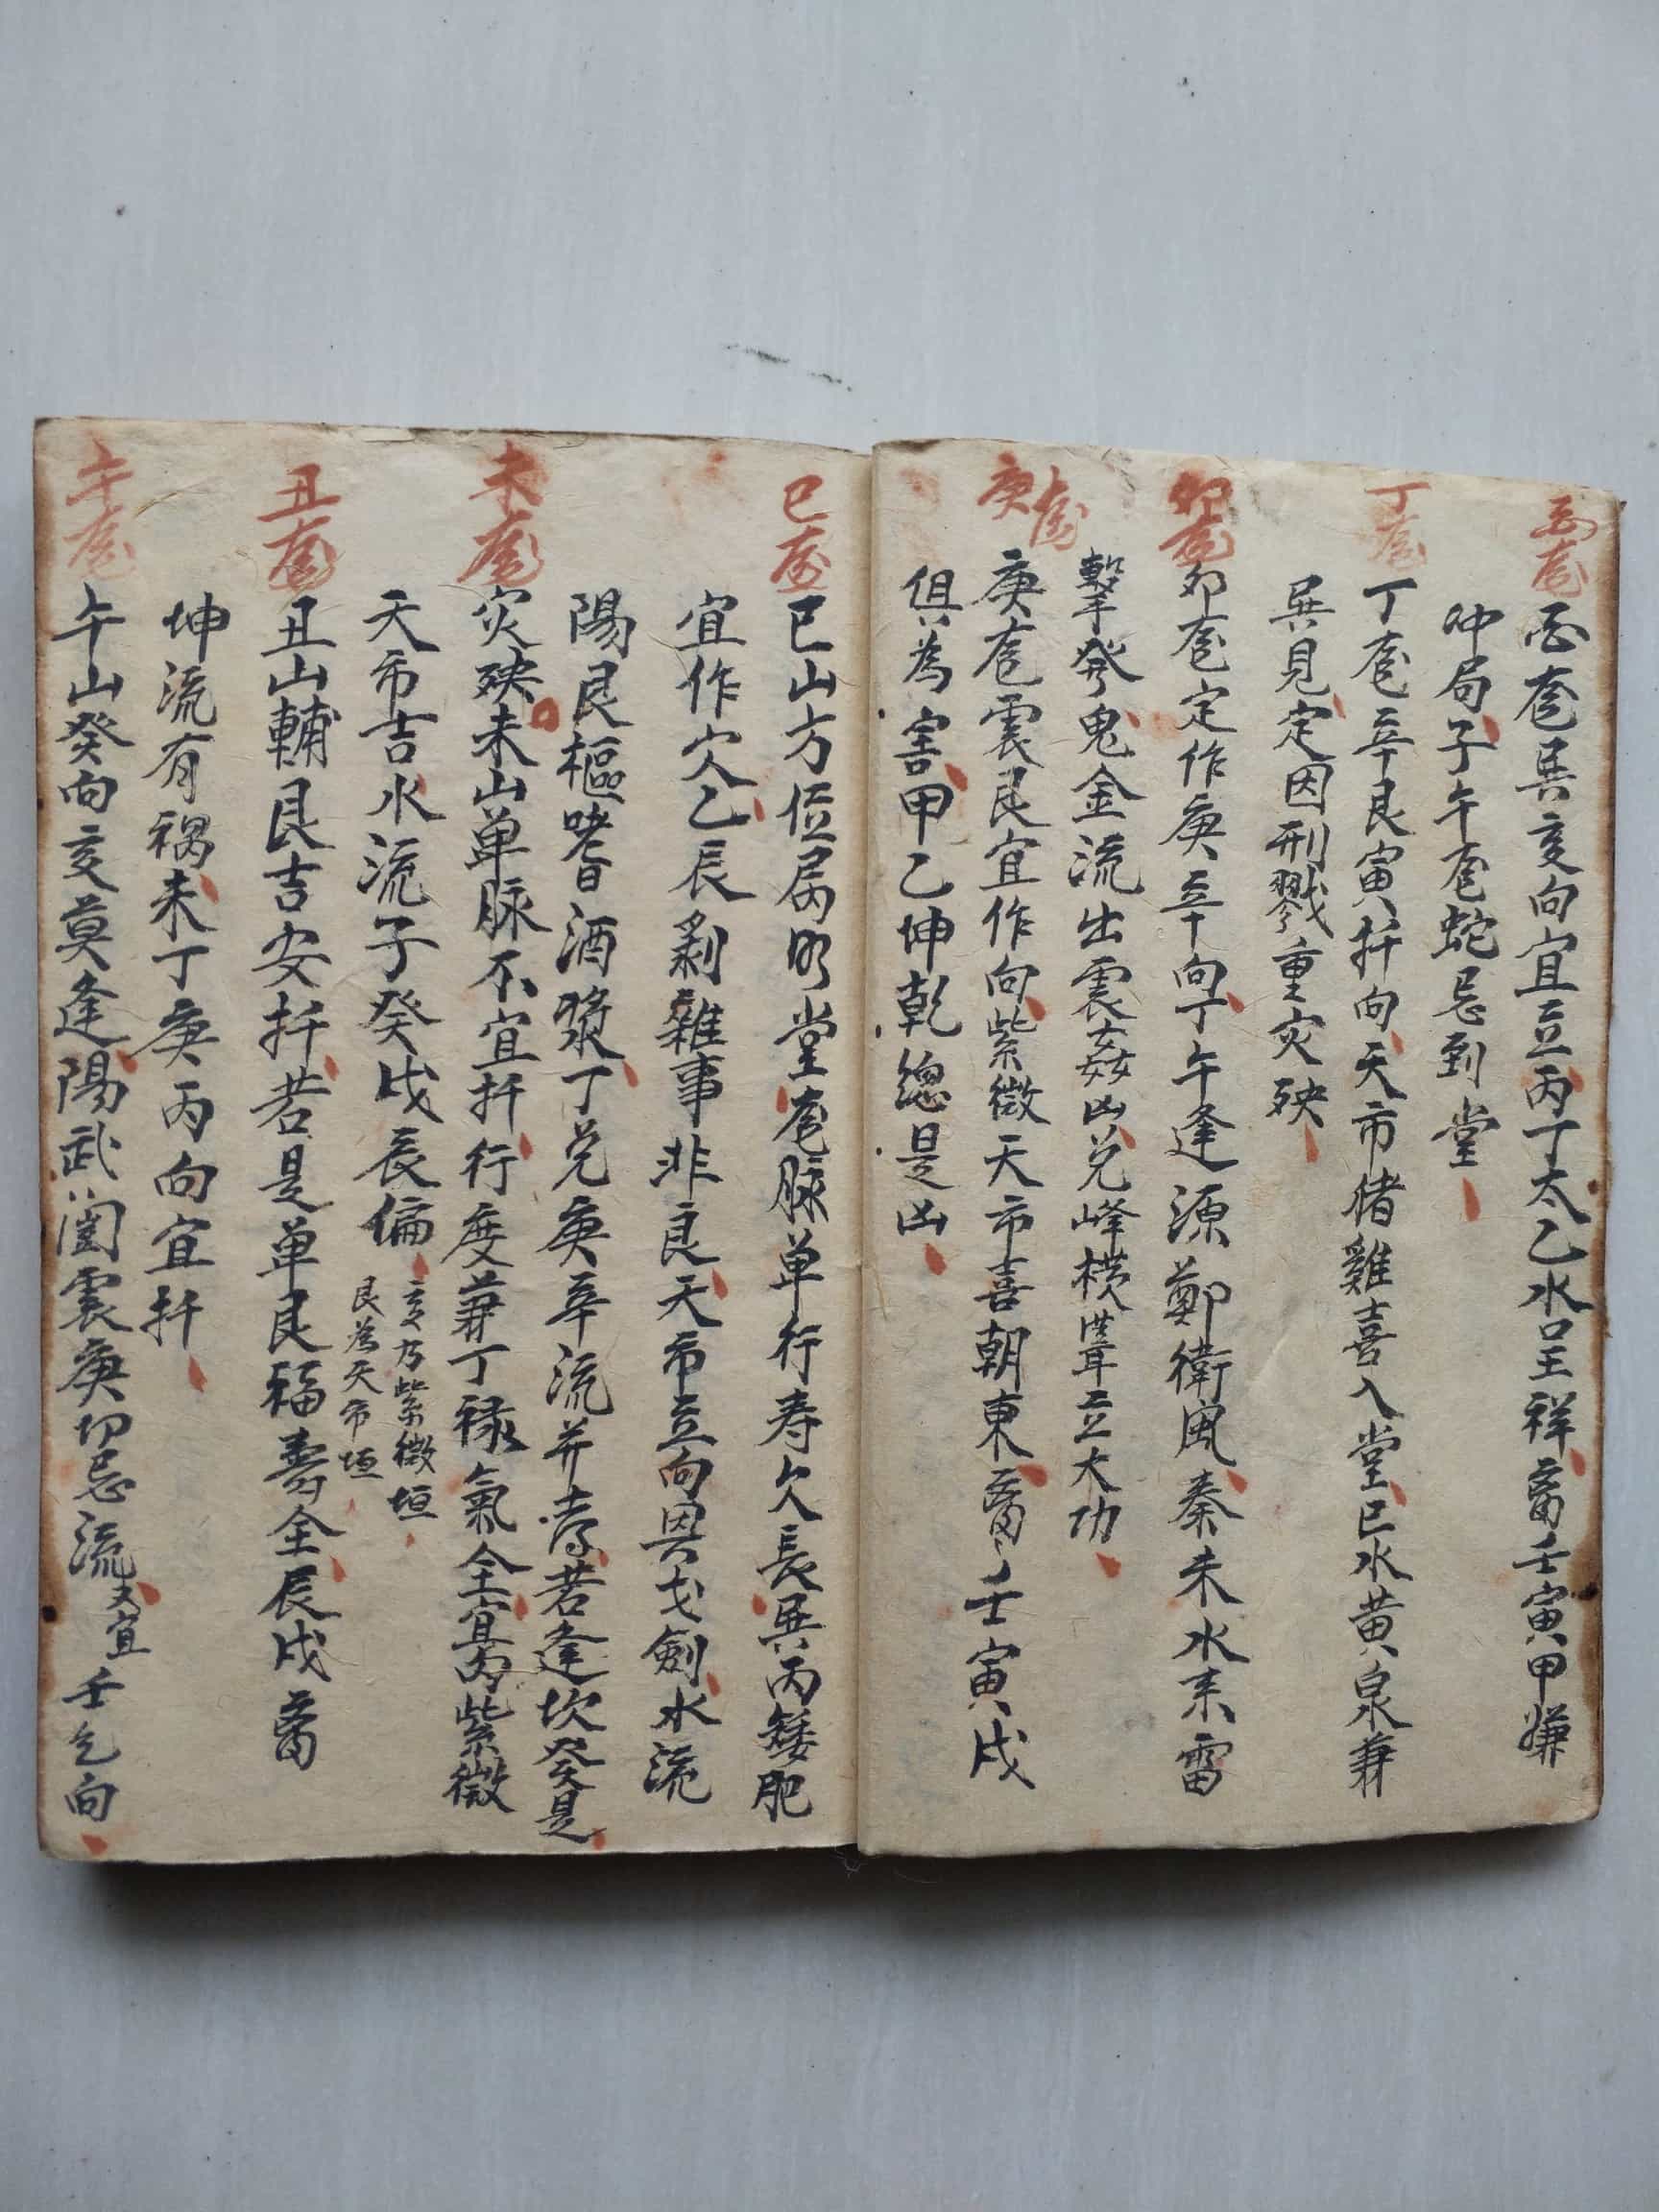 酉龍
酉龍巽亥向宜立丙丁太乙水呈祥畜壬寅甲嫌
冲局子午龍蛇忌到堂
丁龍
丁龍辛艮寅扦向天市猪雞喜入堂巳水黄泉兼
巽見定因刑戮重灾殃
卯龍
卯龍定作庚辛向丁午逢源鄭衛風秦未水耒雷
擊發鬼金流出震姦凶兑峰横聳立大功
庚龍
庚龍震艮宜作向紫微天市喜朝東畜壬寅戌
俱為害甲乙坤乾總是凶
巳龍
巳山方位属明堂龍脉单行寿欠長巽丙矮肥
宜作穴乙辰剝雜事非良天市立向與戈劍水流
陽艮樞嗜酒漿丁兑庚辛流并秀若逢坎癸是
未龍
灾殃未山单脉不宜扦行度兼丁禄氣全宜丙紫微
天市吉水流子癸戌辰偏
亥乃紫微垣
艮為天市垣
丑龍
丑山輔艮吉安扦若是单艮福壽全辰戌畜
坤流有禍未丁庚丙向宜扦
午龍
午山癸向亥莫逢陽武闺震庚切忌流又宜壬乞向